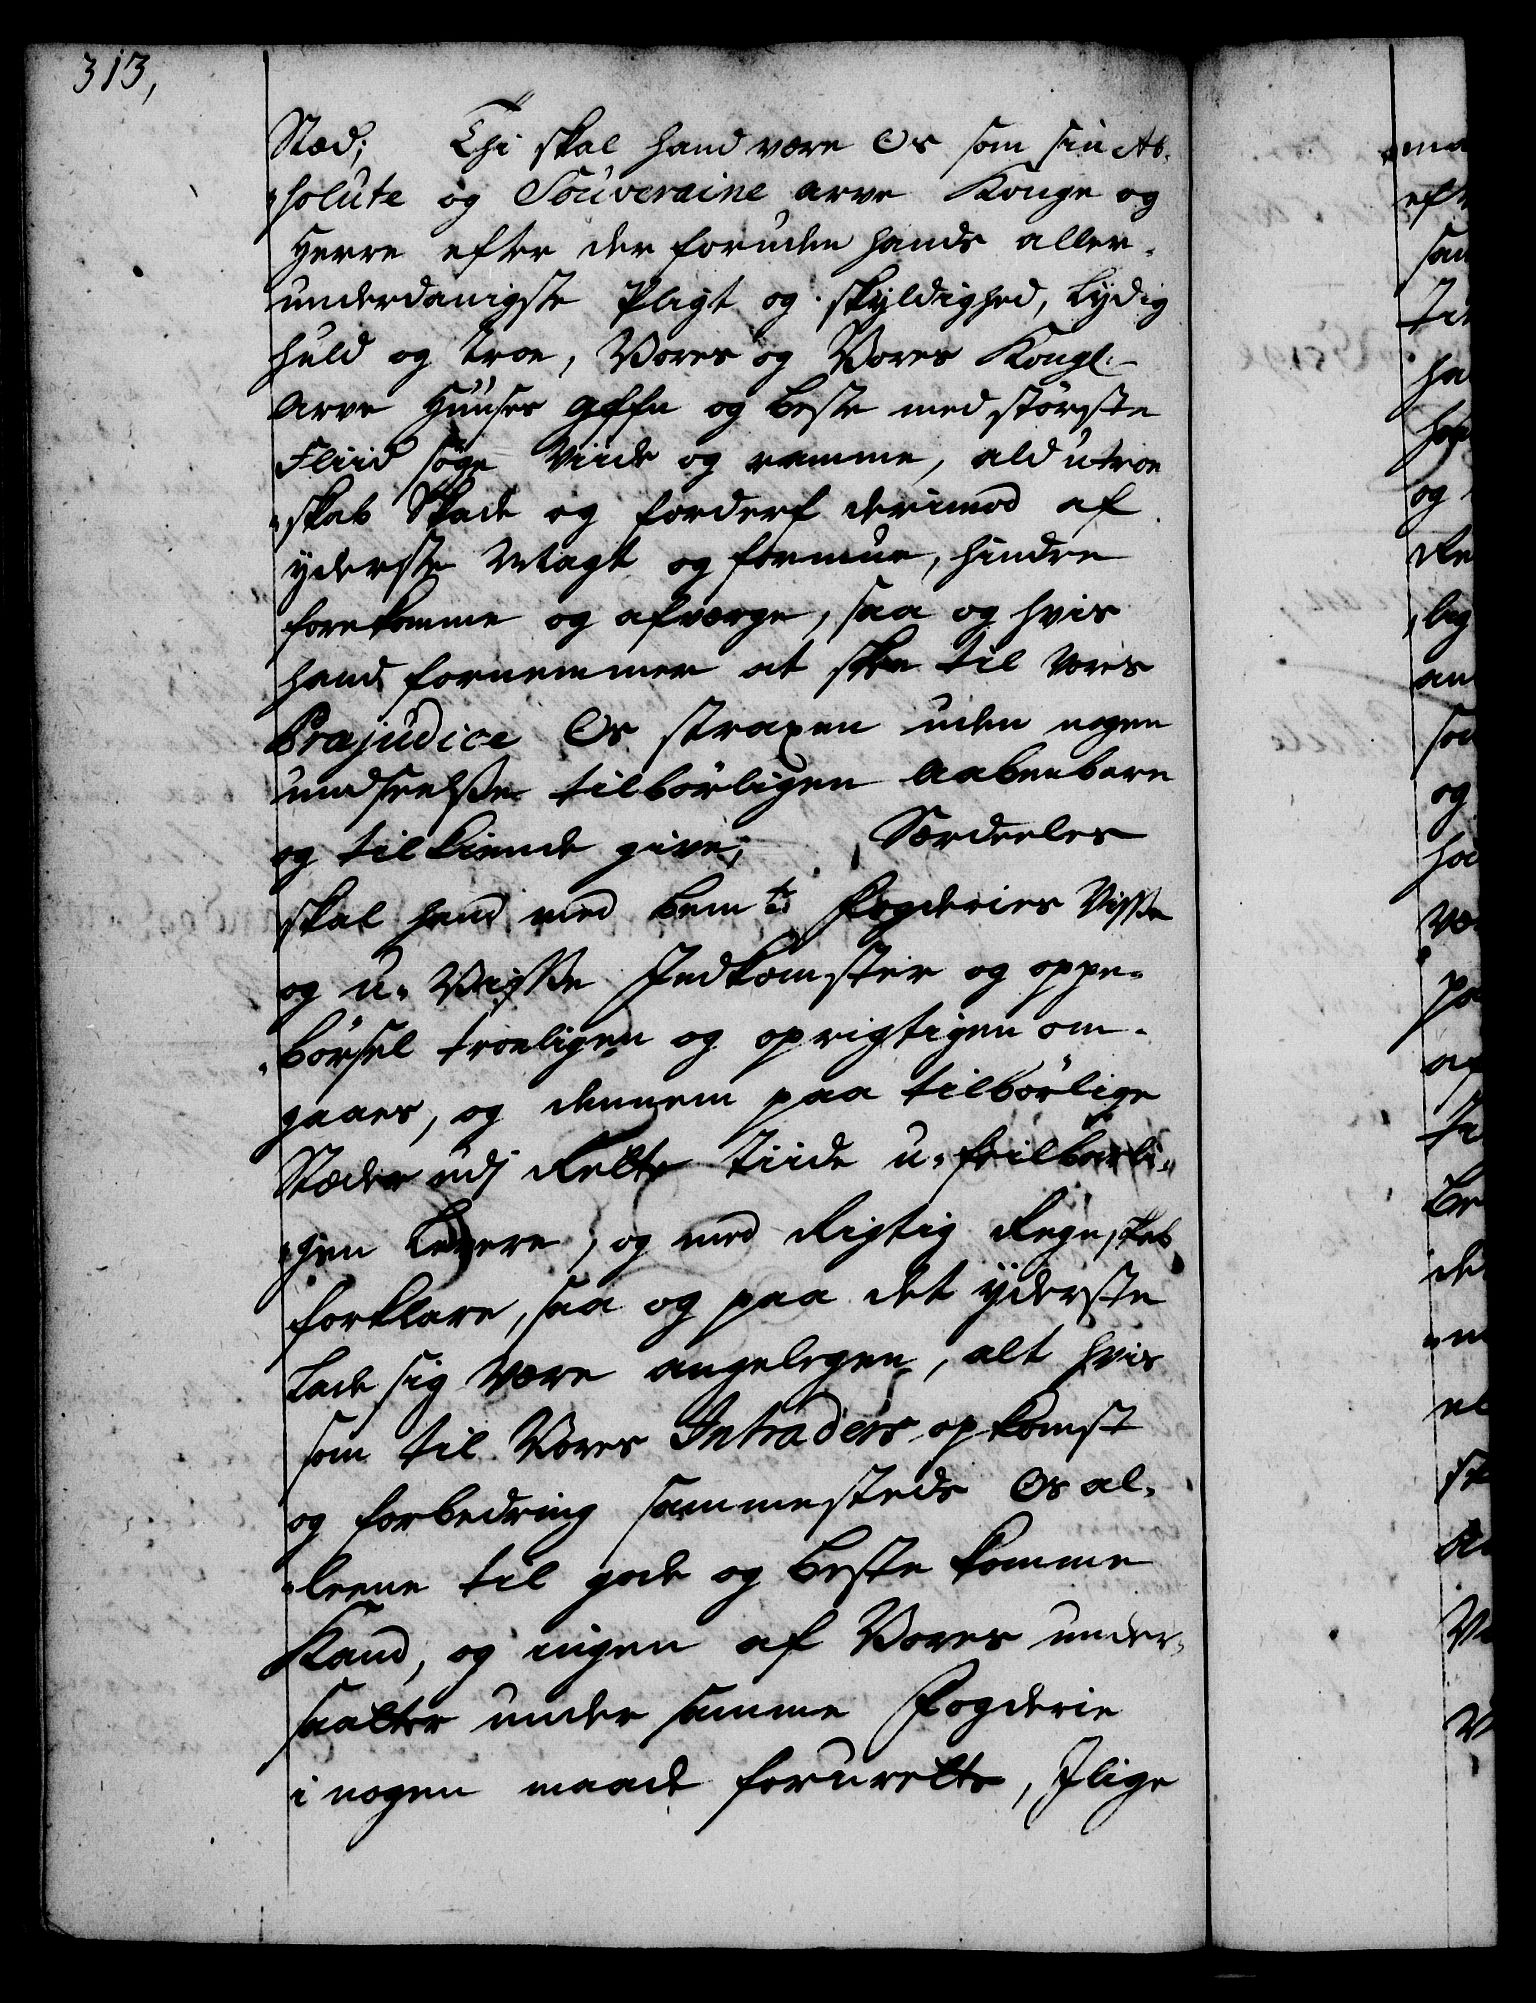 313,
Stæd; Thi skal hand være Os som sin Ab-
"solute og Souveraine arve Konge og
Herre efter der foruden hands aller-
underdanigste Pligt og skyldighed, lydig
huld og troe, Vores og Vores Kongl:
Arve Huuses gafn og beste med störste
Fliid søge Viide og ramme, ald utroe
"skab Skade og forderf derimod af
yderste Magt og formue, hindre
forekomme og afværge, saa og hvis
hand fornemmer at skee til vores
Præjudice Os straxen uden nogen
undseelsse tilbörligen aabenbare
og tilkiende give; Særdeeles
skal hand med bemte Fogderies Visse
og u-Visse Indkomster og oppe-
"börsel troeligen og oprigtigen om-
gaaes, og dennem paa tilbörlige
Stæder udj Rette tiide u-feilbarli-
"gen levere, og med Rigtig Regnskab
forklare, saa og paa det yderste
lade sig være angelegen, alt hvis
som til Vores Intraders opkomst
og forbedring sammesteds Os al-
"leene til gode og beste komme
Kand, og ingen af Vores under-
saatter under samme Fogderie
i nogen maade forurette, Ilige